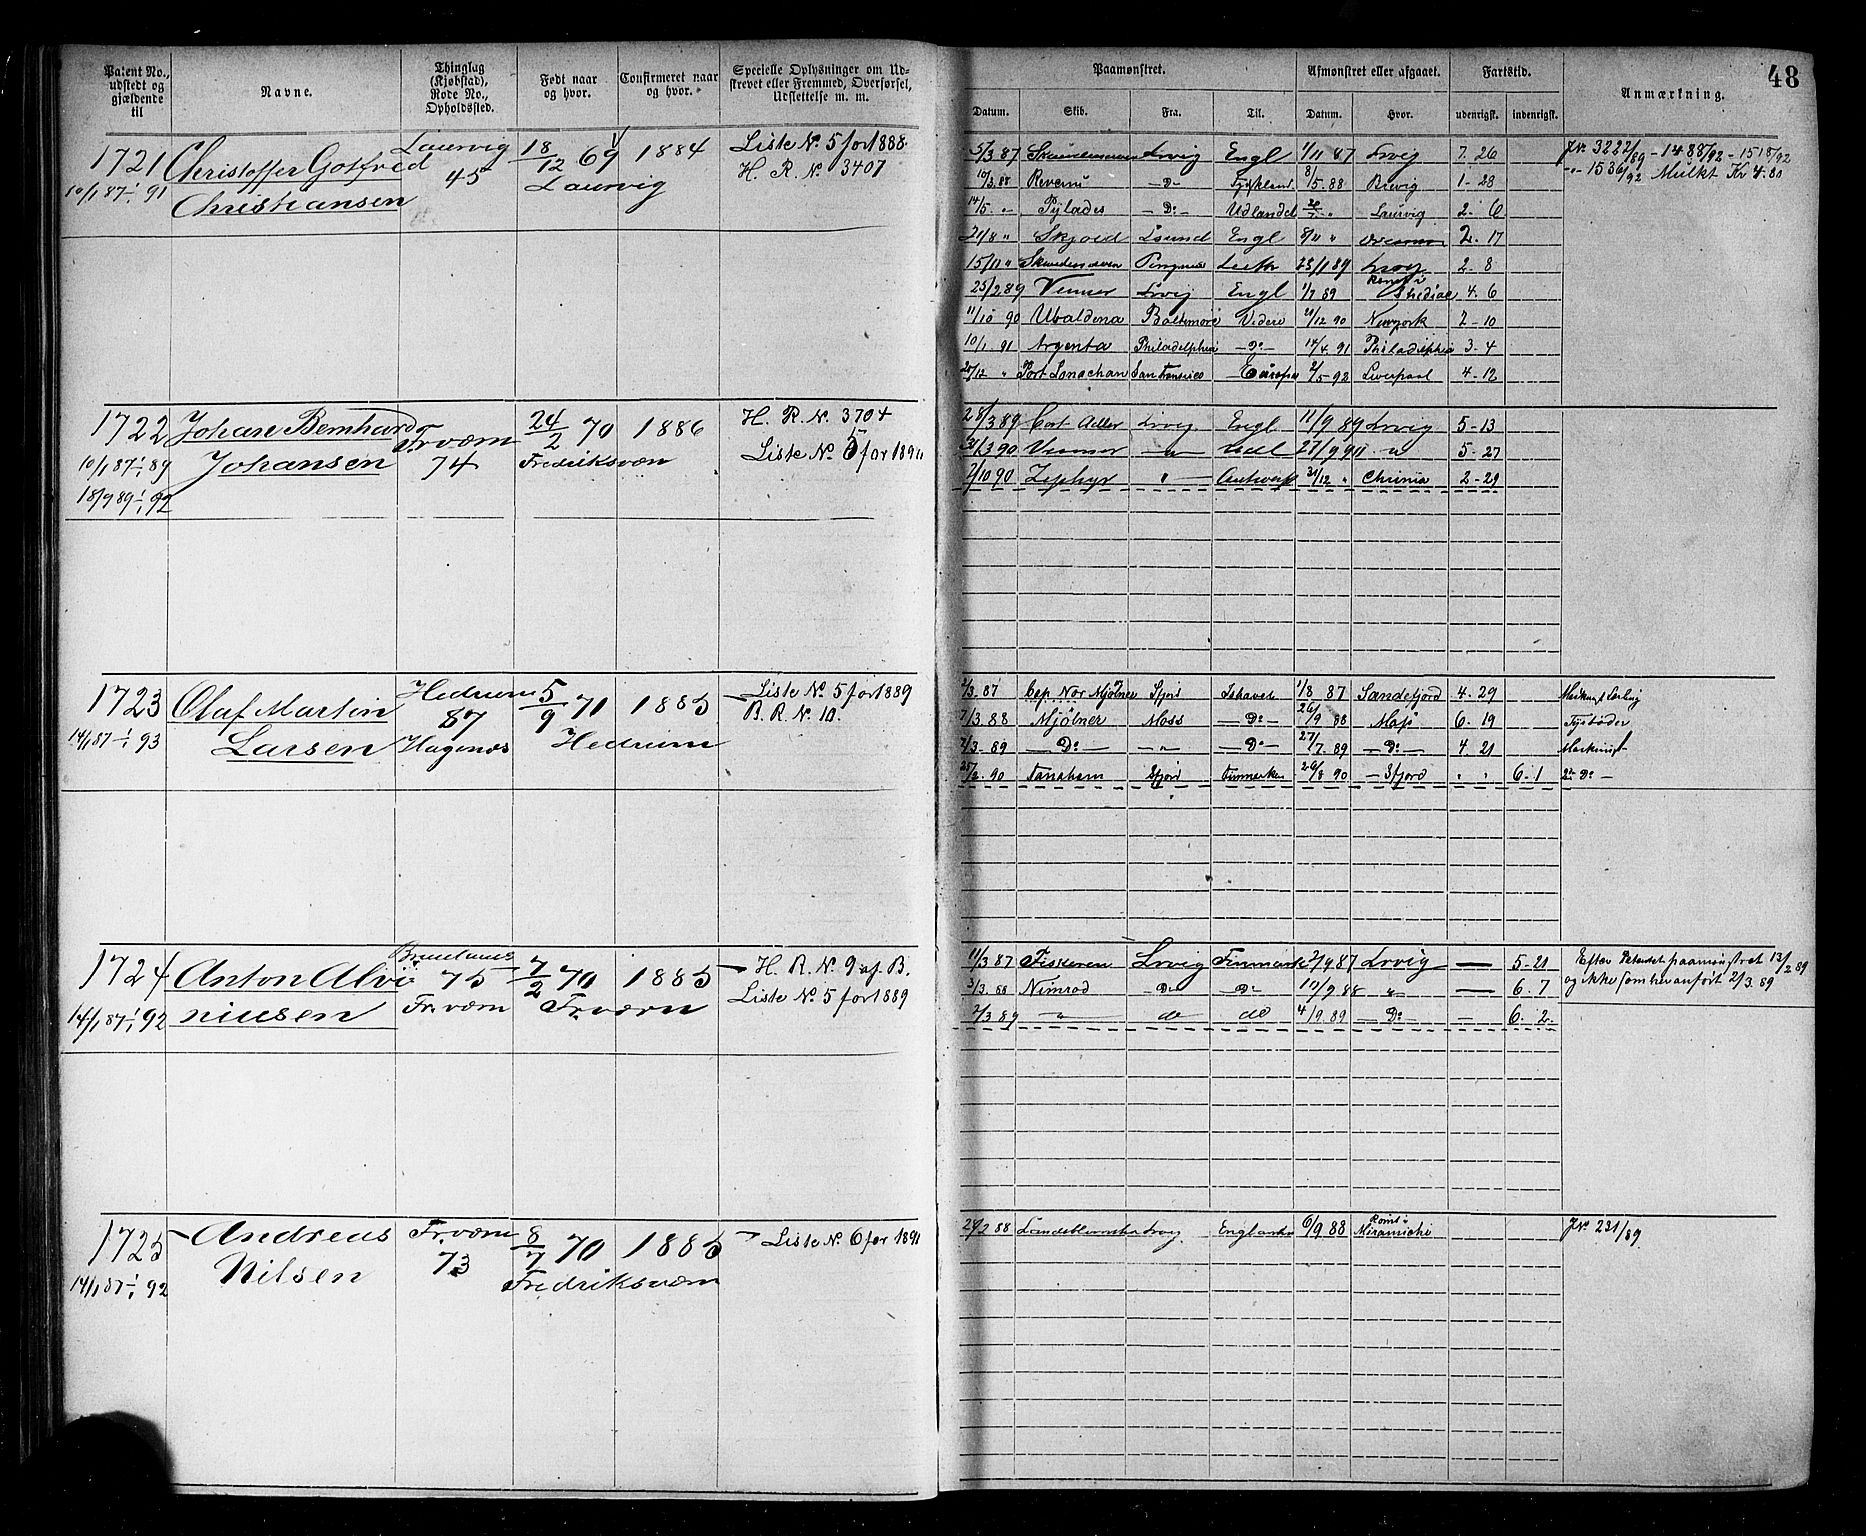 48
Patent No., udstedt og gjældende til
Navne.
Thinglag (Kjøbstad), Rode No., Opholdssted.
Født naar og hvor.
Confirmeret naar og hvor.
Specielle Oplysninger om Udskrevet eller Fremmed, Overførsel, Udslettelse m. m.
Paamønstret.
Afmønstret eller afgaaet.
Fartstid.
Anmærkning.
Datum. Skib. Fra. Til. Datum. Hvor. udenrigsk. indenrigsk.
1721 Christoffer Gotfred Laurvig 18/12 69 1884 Liste No. 5 for 1888
10/1 87 1/1 91 Christiansen 45 Laurvig H. R. No. 3407
5/3 87 Lrvig Engl 1/11 87 Lrvig 7. 26
10/3 88 Revenu — Do — Tyskland 8/5 88 Brevig 1 - 28
14/5 " Pylades — Do — Udlandet Laurvig 2. 6
21/8 " Skjold Engl 8/11 " 2. 17
15/11 " Leith 23/1 89 Lrvig 2 - 8
25/2 89 Venner Lrvig Engl 1/7 89 Rømt i Shediac 4. 6
11/10 90 Ubaldena Baltimore Videre 21/12 90 Newyork 2 - 10
10/1 91 Argenta Philadelphia — Do — 14/4 91 Philadelphia 3. 4
" Port Lonachan San Fransisco Europa 2/5 92 Liverpool 4 - 12
JNo. 3222/89 - 1488/92 - 1518/92
- " - 1536/92 Mulkt Kr 4.80
1722 Johan Bernhard Fr.værn 24/2 70 1886 H. R. No. 3704
10/1 87 1/1 89 Johansen 74 Fredriksværn Liste No. 5 for 1891
18/9 89 1/1 92
28/3 89 Cort Adler Lrvig Engl 11/9 89 Lrvig 5 - 13
31/3 90 Venner — " — Udl 27/9 90 " 5 - 27
2/10 90 Zephyr " Antwerp 31/12 " Chrinia 2 - 29
1723 Olaf Martin Hedrum 5/9 71 1885 Liste No. 5 for 1889
14/1 87 1/1 93 Larsen 87 Hagenæs Hedrum B. R. No. 10.
2/3 87 Cap Nor Mjølner Sfjord Ishavet 1/8 87 Sandefjord 4. 29
7/3 88 Mjølner Moss — Do — 26/9 88 Moss 6. 19
2/3 89 — Do — — " — — Do — 27/7 89 — Do — 4. 21
25/2 90 Tanahorn Sfjord Finmarken 26/8 90 — Sfjord " " 6. 1 2den Do —
1724 Anton Alvi- Brunlanes 7/2 70 1885 — H. R. No. 9 af B.
14/1 87 1/1 92 niusen 75 Fr.værn Fr.værn Liste No. 5 for 1889
11/3 87 Fiskeren Lrvig Finmark 2/9 87 Lrvig — 5. 21
3/3 88 Nimrod — Do — Do — 10/9 88 " — 6. 7
2/3 89 — " — do do 4/9 89 — Do — — 6. 2.
Efter Patentet paamønstret 13/2 89
og ikke som her anført 2/3 89
1725 Andreas Fr.værn 8/7 70 1885 Liste No. 6 for 1891
14/1 87 1/1 92 Nilsen 73 Fredriksværn
24/2 88 Lrvig 6/9 88 Rømt i Miramichi
JNo. 231/89